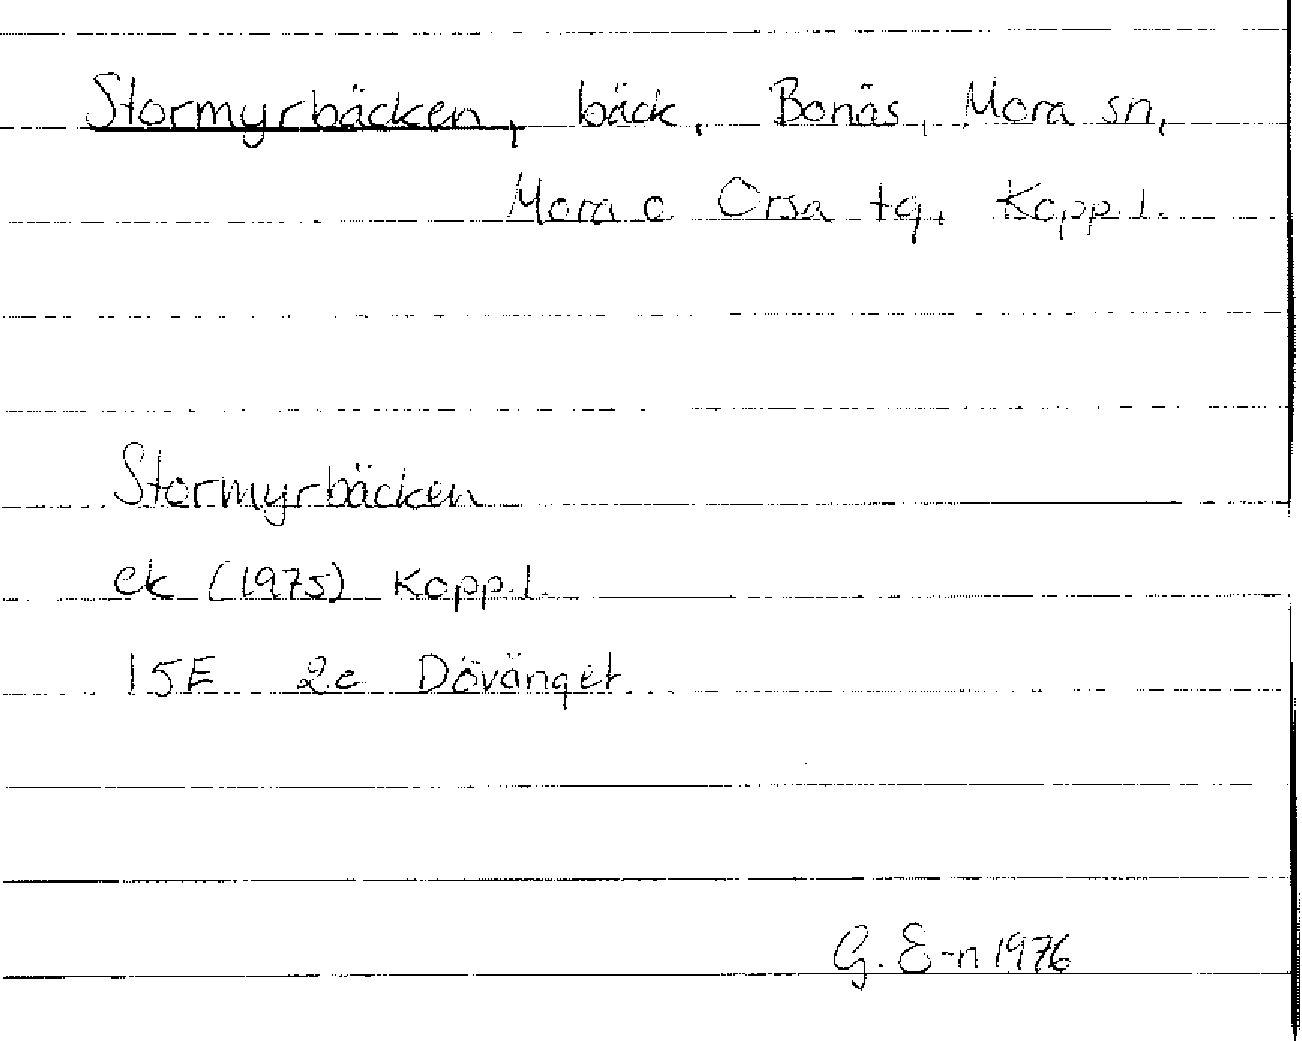 Stormyrbäcken, bäck, Bonäs, Mora sn,
Mora o Orsa tg, Kopp.l.
Stormyrbäcken
ek (1975) Kopp.l.
15E 2c Dövänget
G. E-n 1976